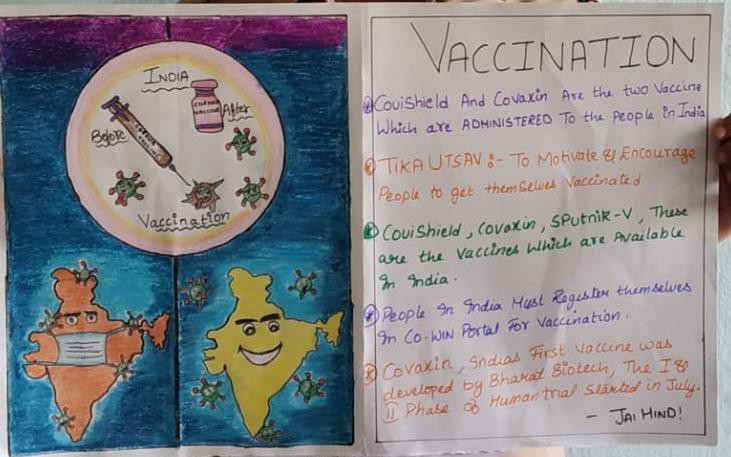 INDIA
CORONA
VACCINE
After
Before
CORONA
VACCINE
Vaccination
VACCINATION
CouiShield And Covaxin Are the two Vaccine
Which are ADMINISTERED To the People in India
TIKA UTSAV :- To Motivate & Encourage
People to get themselves Vaccinated
CouiShield, Covaxin, SPutnik-V, These
are the Vaccines Which are Available
In India.
People In India Must Register themselves
In Co-WIN Portal For Vaccination.
Covaxin, Indias First Vaccine was
developed by Bharat Biotech, The I &
II Phase of Human trial Started in July.
- JAI HIND!